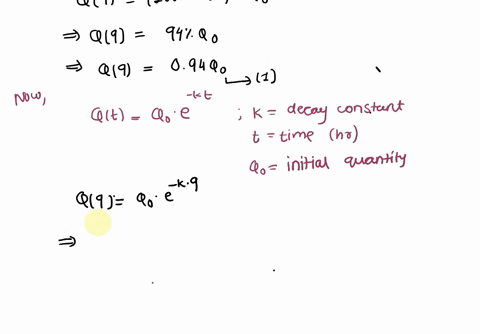 ⇒ Q(9) = 94% Q₀
⇒ Q(9) = 0.94 Q₀ → (1)
Now,
Q(t) = Q₀ · e^(-kt) ; k = decay constant
t = time (hr)
Q₀ = initial quantity
Q(9) = Q₀ · e^(-k·9)
⇒